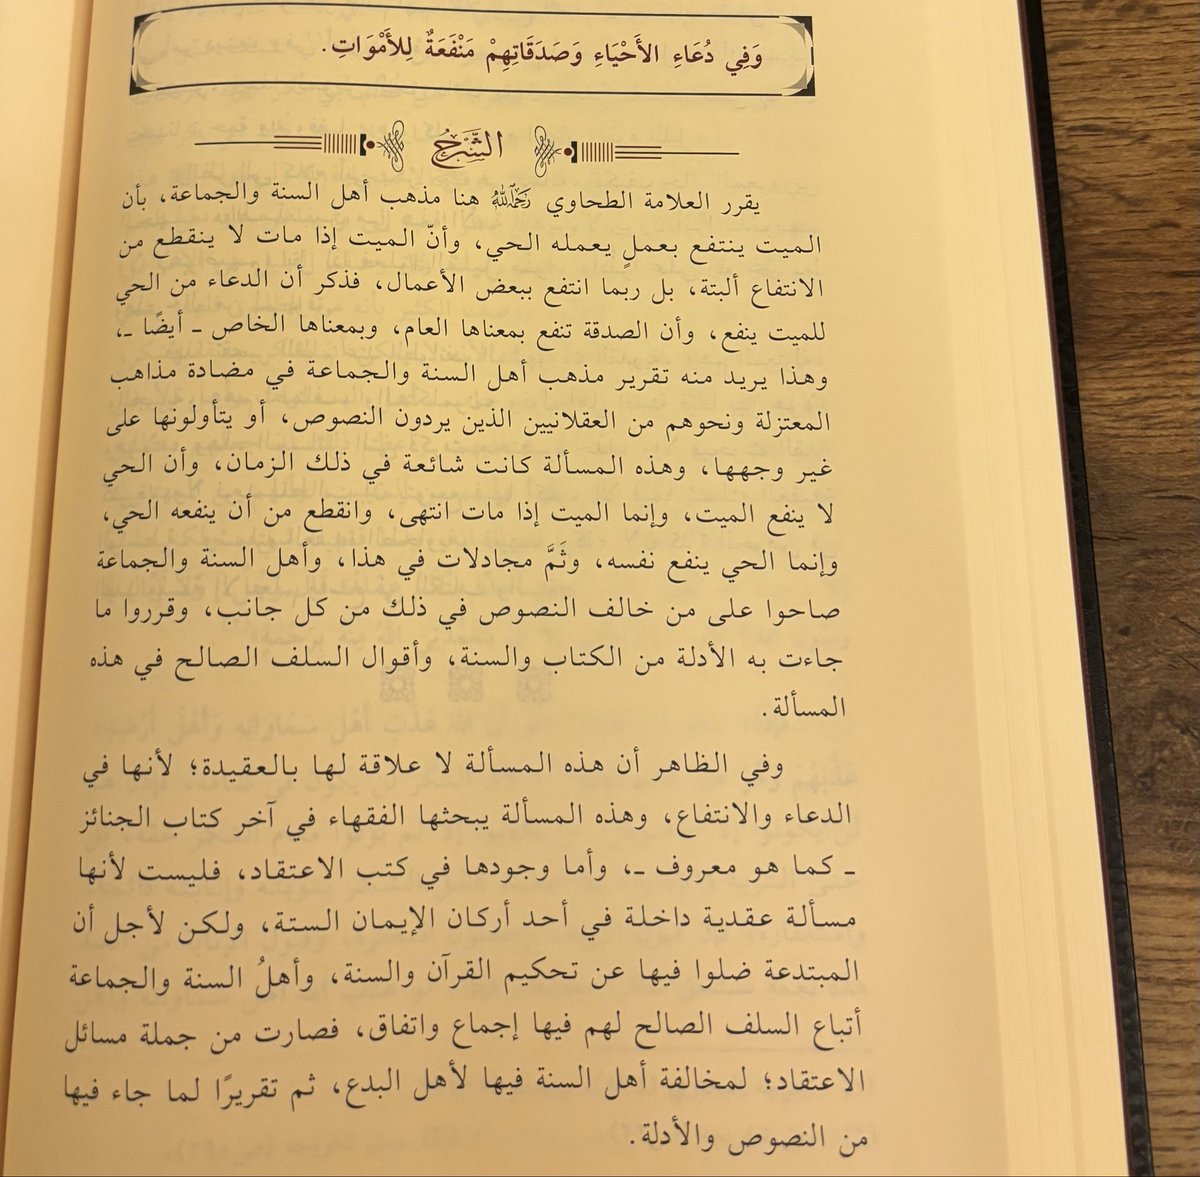 وَفِي دُعَاءِ الأَحْيَاءِ وَصَدَقَاتِهِمْ مَنْفَعَةٌ لِلأَمْوَاتِ.
الشَّرْحُ
يقرر العلامة الطحاوي رَحِمَهُ اللهُ هنا مذهب أهل السنة والجماعة، بأن
الميت ينتفع بعملٍ يعمله الحي، وأنّ الميت إذا مات لا ينقطع من
الانتفاع ألبتة، بل ربما انتفع ببعض الأعمال، فذكر أن الدعاء من الحي
للميت ينفع، وأن الصدقة تنفع بمعناها العام، وبمعناها الخاص ـ أيضًا ـ،
وهذا يريد منه تقرير مذهب أهل السنة والجماعة في مضادة مذاهب
المعتزلة ونحوهم من العقلانيين الذين يردون النصوص، أو يتأولونها على
غير وجهها، وهذه المسألة كانت شائعة في ذلك الزمان، وأن الحي
لا ينفع الميت، وإنما الميت إذا مات انتهى، وانقطع من أن ينفعه الحي،
وإنما الحي ينفع نفسه، وثَمَّ مجادلات في هذا، وأهل السنة والجماعة
صاحوا على من خالف النصوص في ذلك من كل جانب، وقرروا ما
جاءت به الأدلة من الكتاب والسنة، وأقوال السلف الصالح في هذه
المسألة.
وفي الظاهر أن هذه المسألة لا علاقة لها بالعقيدة؛ لأنها في
الدعاء والانتفاع، وهذه المسألة يبحثها الفقهاء في آخر كتاب الجنائز
ـ كما هو معروف ـ، وأما وجودها في كتب الاعتقاد، فليست لأنها
مسألة عقدية داخلة في أحد أركان الإيمان الستة، ولكن لأجل أن
المبتدعة ضلوا فيها عن تحكيم القرآن والسنة، وأهلُ السنة والجماعة
أتباع السلف الصالح لهم فيها إجماع واتفاق، فصارت من جملة مسائل
الاعتقاد؛ لمخالفة أهل السنة فيها لأهل البدع، ثم تقريرًا لما جاء فيها
من النصوص والأدلة.